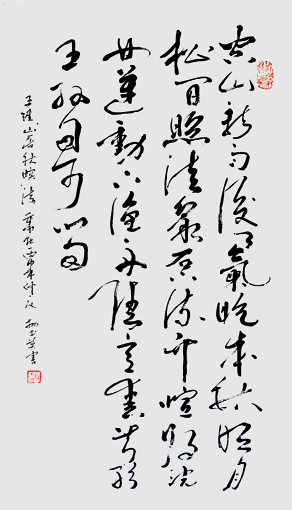 空山新雨後天氣晚來秋明月
松間照清泉石上流竹喧歸浣
女蓮動下漁舟隨意春芳歇
王孫自可留
王維山居秋暝詩
書